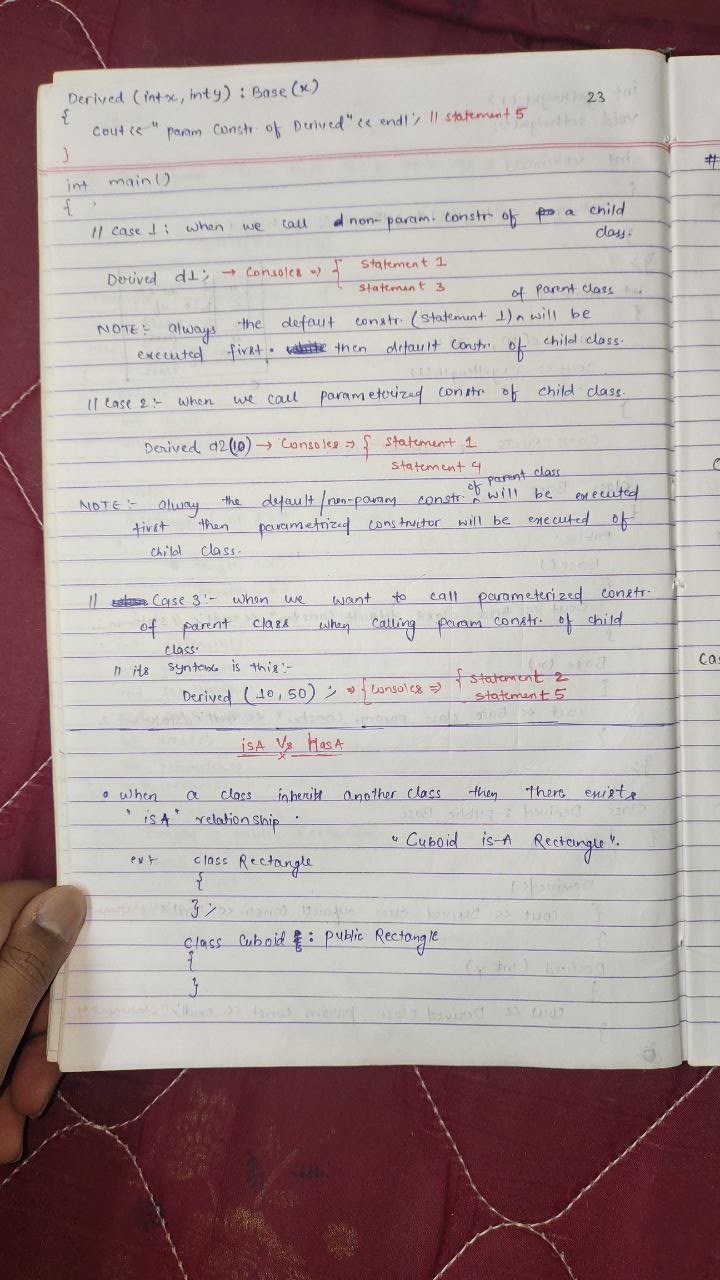 23
Derived (int x, int y) : Base (x)
{
cout << " param constr. of Derived" << endl; // statement 5
}
int main()
{
// case 1: when we call non-param. constr of a child
class.
Derived d1; → Consoles => { statement 1
statement 3
of parent class
NOTE:- always the defaut constr. (statement 1) ^ will be
executed first. then default constr. of child class.
// Case 2:- when we call parameterized constr of child class.
Derived d2(10) → Consoles => { statement 1
statement 4
of parent class
NOTE:- alway the default/non-param constr. ^ will be executed
first then parametrized constructor will be executed of
child class.
// Case 3:- when we want to call parameterized constr.
of parent class when calling param constr. of child
class.
// its syntax is this:-
Derived (10, 50) ; => { consoles => { statement 2
statement 5
isA Vs HasA
• when a class inherits another class then there exists
"isA" relationship.
"Cuboid is-A Rectangle".
class Rectangle
{
};
class Cuboid : public Rectangle
{
}
#